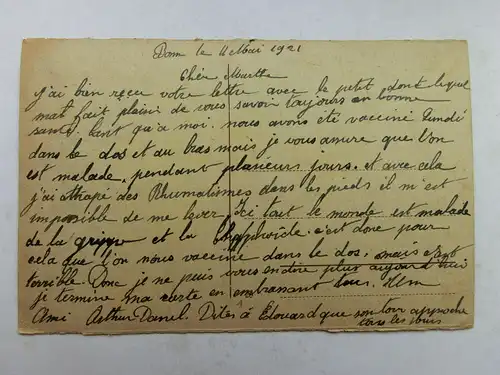 Dom le 11 Mai 1921
Chère Marthe
J'ai bien reçu votre lettre avec le petit dont lequel
mat fait plaisir de vous savoir toujours en bonne
santé. tant qu'a moi. nous avons été vacciné lundi
dans le dos et au bras mais je vous assure que l'on
est malade. pendant plusieur jours. et avec cela
j'ai athapé des Rhumatismes dans les pieds il m'est
imposible de me lever. Ici tout le monde est malade
de la grippe et la c'est donc pour
cela que l'on nous vaccine dans le dos. mais c'est
torrible. Donc je ne puis vous en dire plus aujourd'hui
je termine ma carte en embrasant tous.
Ami Arthur Danel. Dites à Edouard que son tour approche
tous les jours